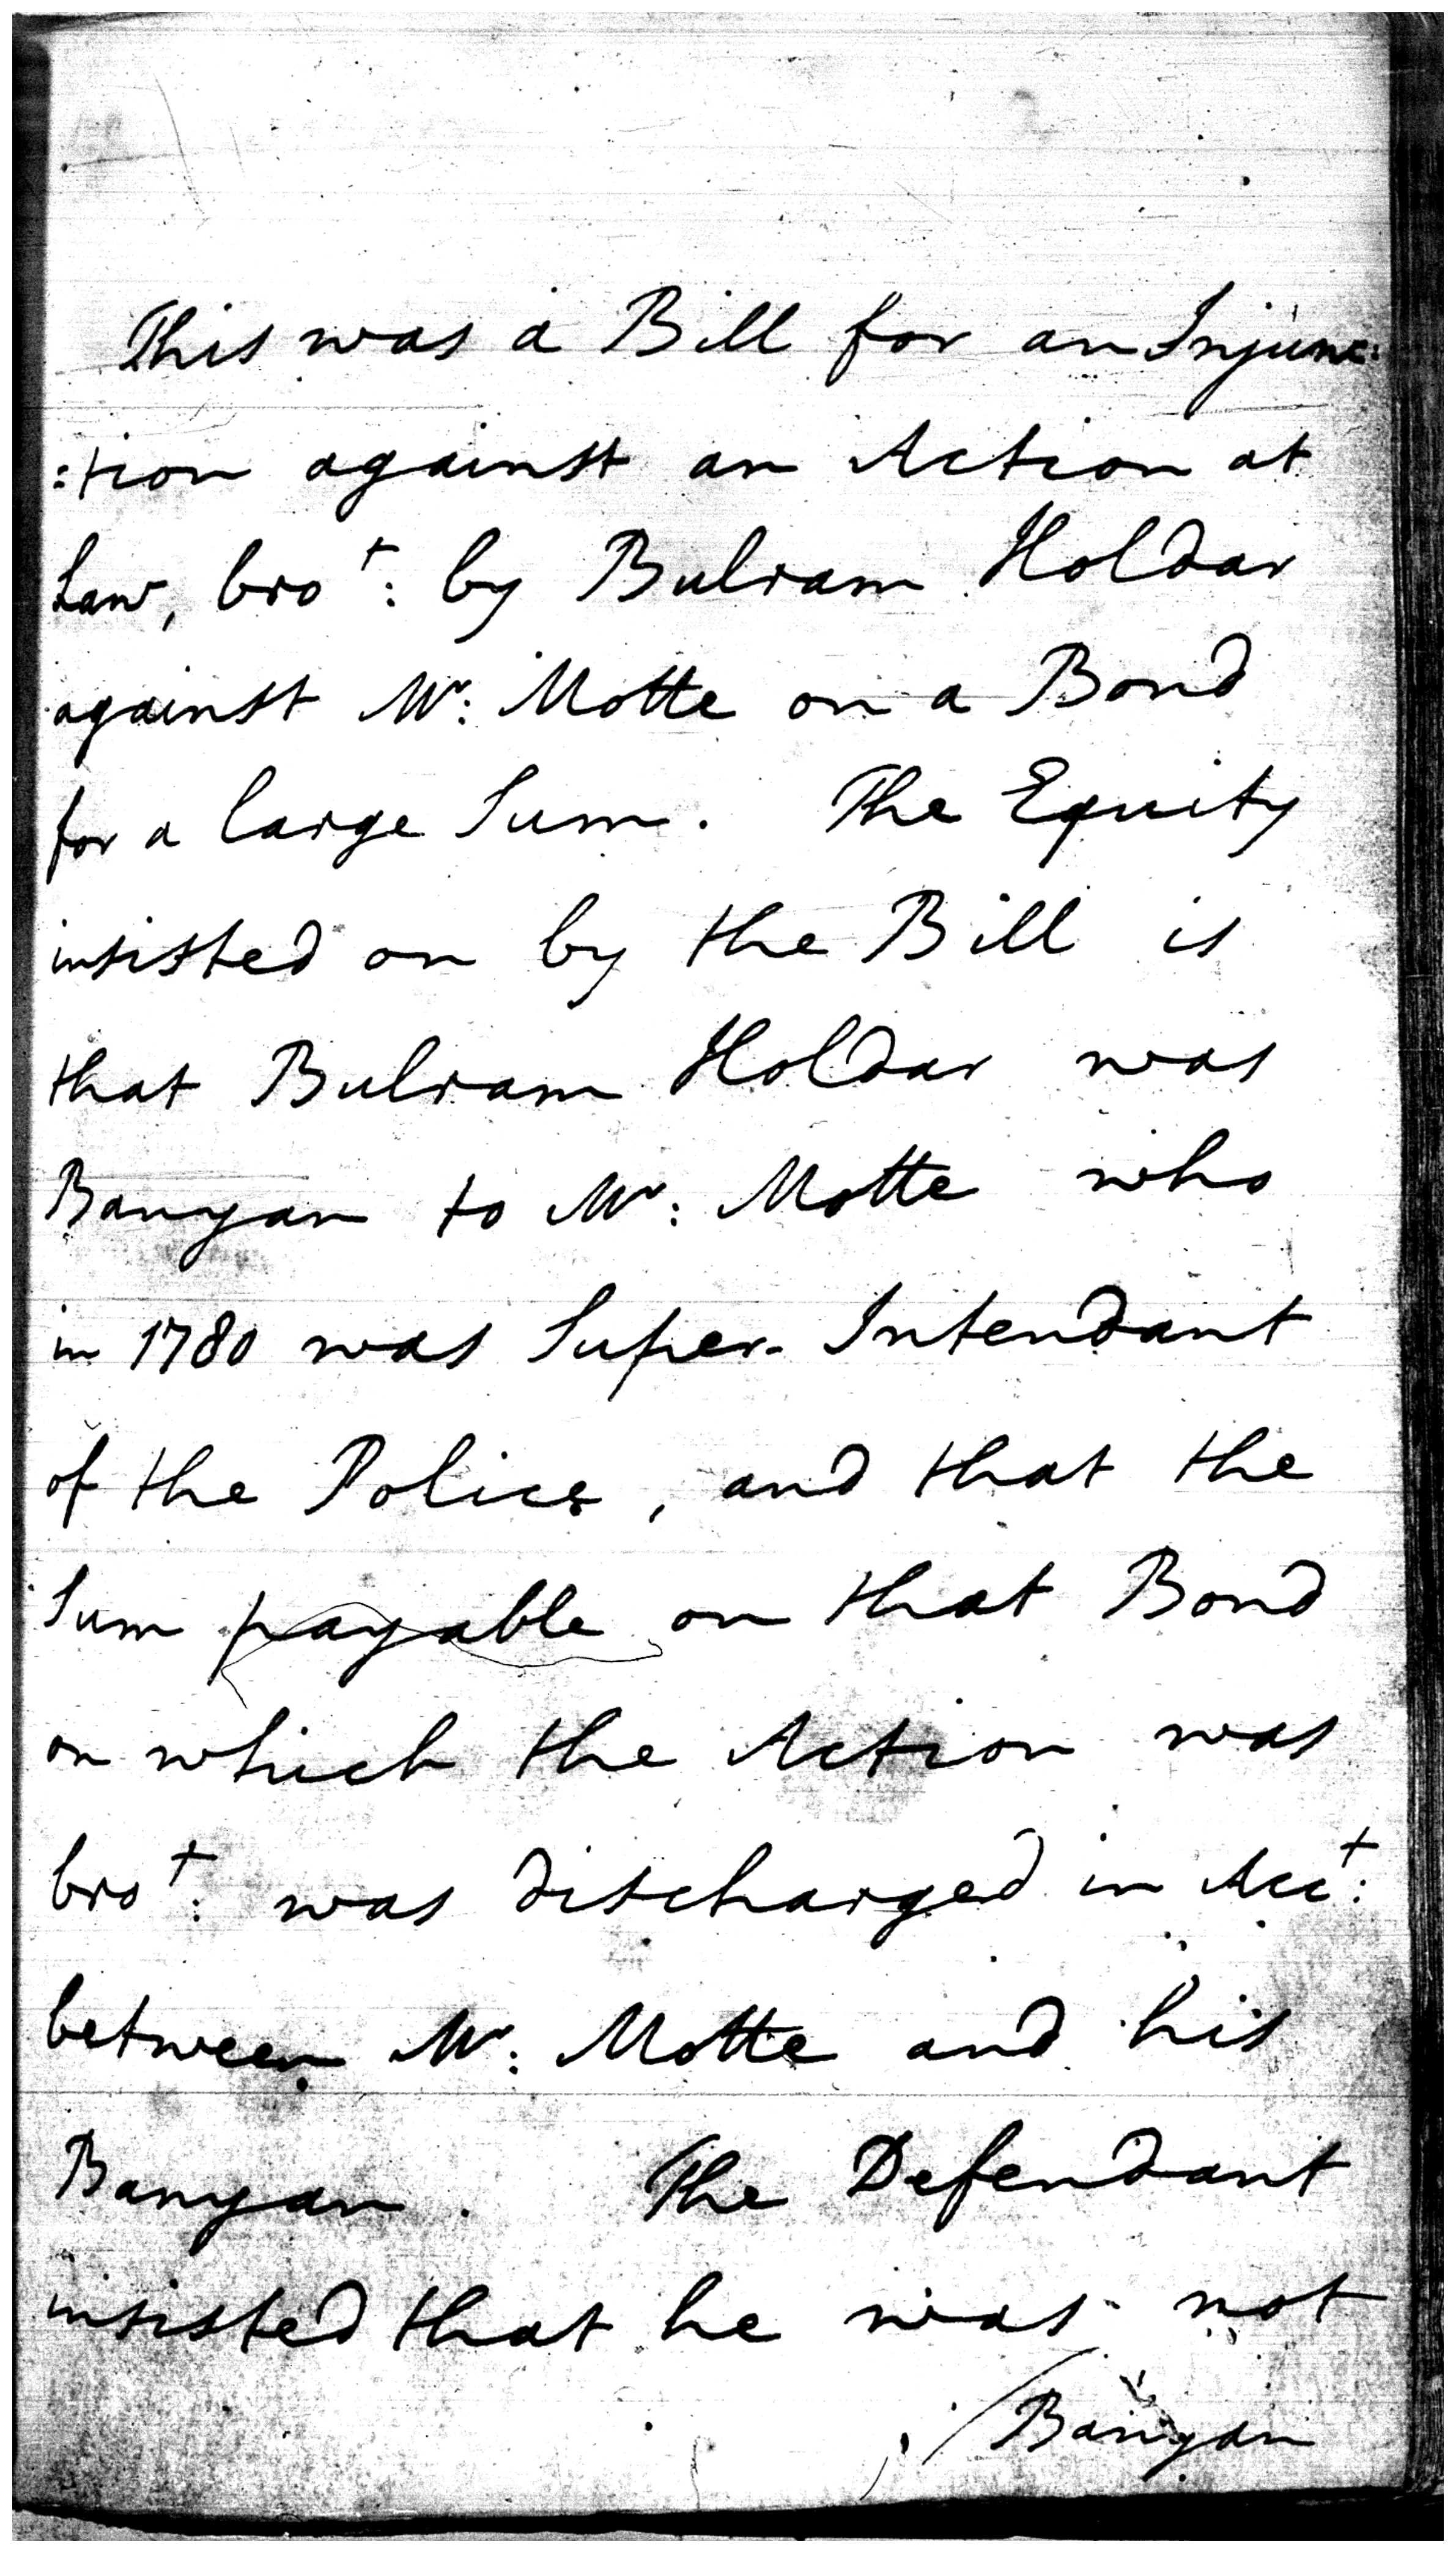 This was a Bill for an Injunc:
:tion against an Action at
Law, bro^t: by Bulram Holdar
against M^r: Motte on a Bond
for a large Sum. The Equity
insisted on by the Bill is
that Bulram Holdar was
Banyan to M^r: Motte who
in 1780 was Super-Intendant
of the Police, and that the
Sum payable on that Bond
on which the Action was
bro^t: was discharged in Acc^t:
between M^r: Motte and his
Banyan. The Defendant
insisted that he was not
/Banyan